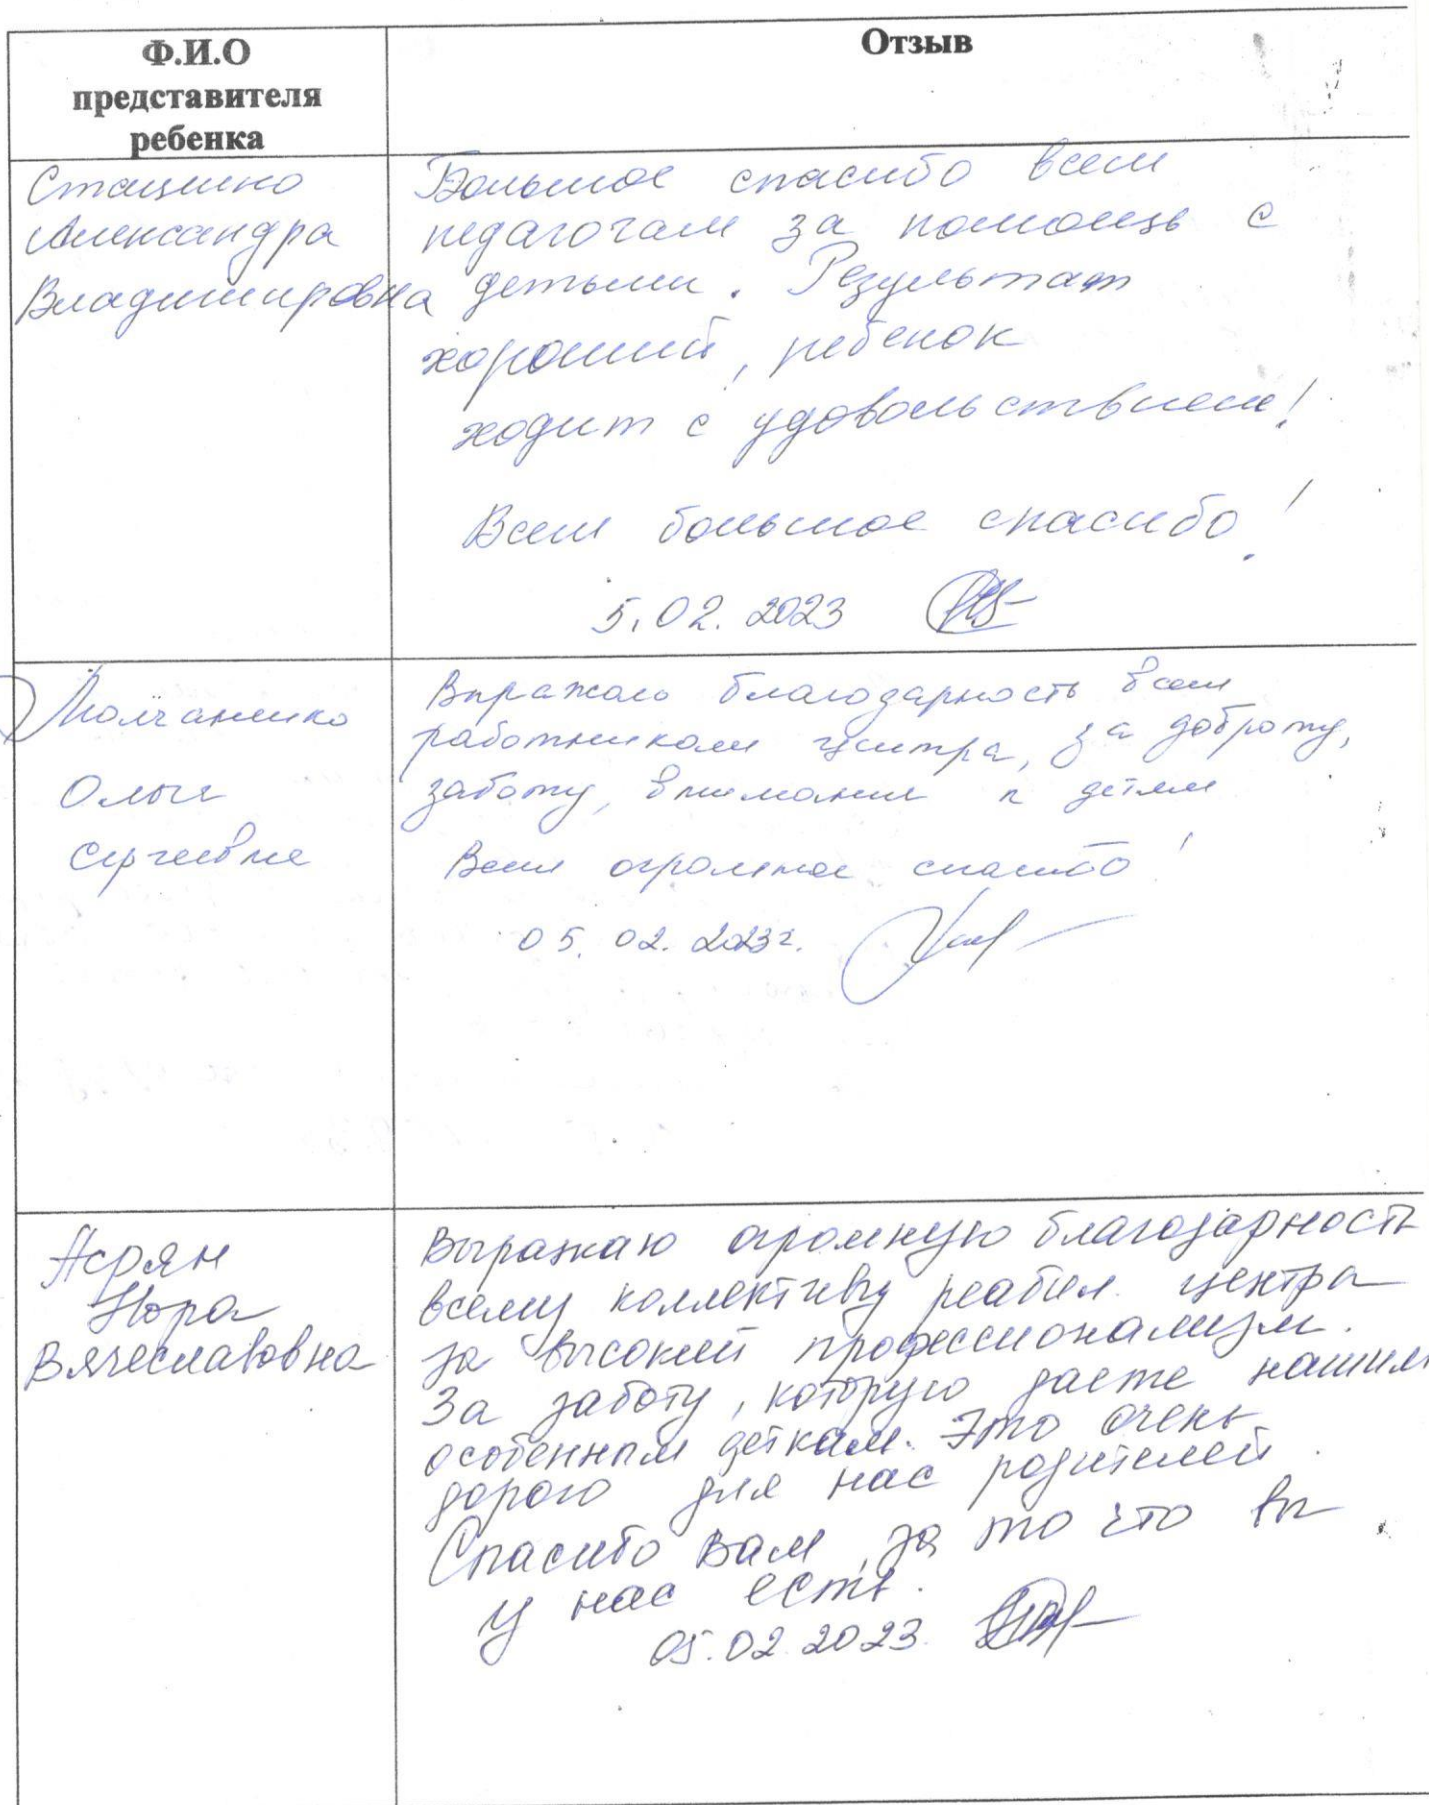 Ф.И.О
представителя
ребенка
Отзыв
Александра
Владимировна
Большое спасибо всем
педагогам за помощь с
детьми. Результат
хороший, ребенок
ходит с удовольствием!
Всем большое спасибо!
5.02.2023
Ольга
Сергеевна
Выражаю благодарность всем
работникам центра, за доброту,
заботу, внимание к детям
Всем огромное спасибо!
05.02.2023г.
Нора
Вячеславовна
Выражаю огромную благодарность
всему коллективу реабил. центра
за высокий профессионализм.
За заботу, которую даете нашим
особенным деткам. Это очень
дорого для нас родителей.
Спасибо Вам, за то что вы
у нас есть.
05.02.2023.